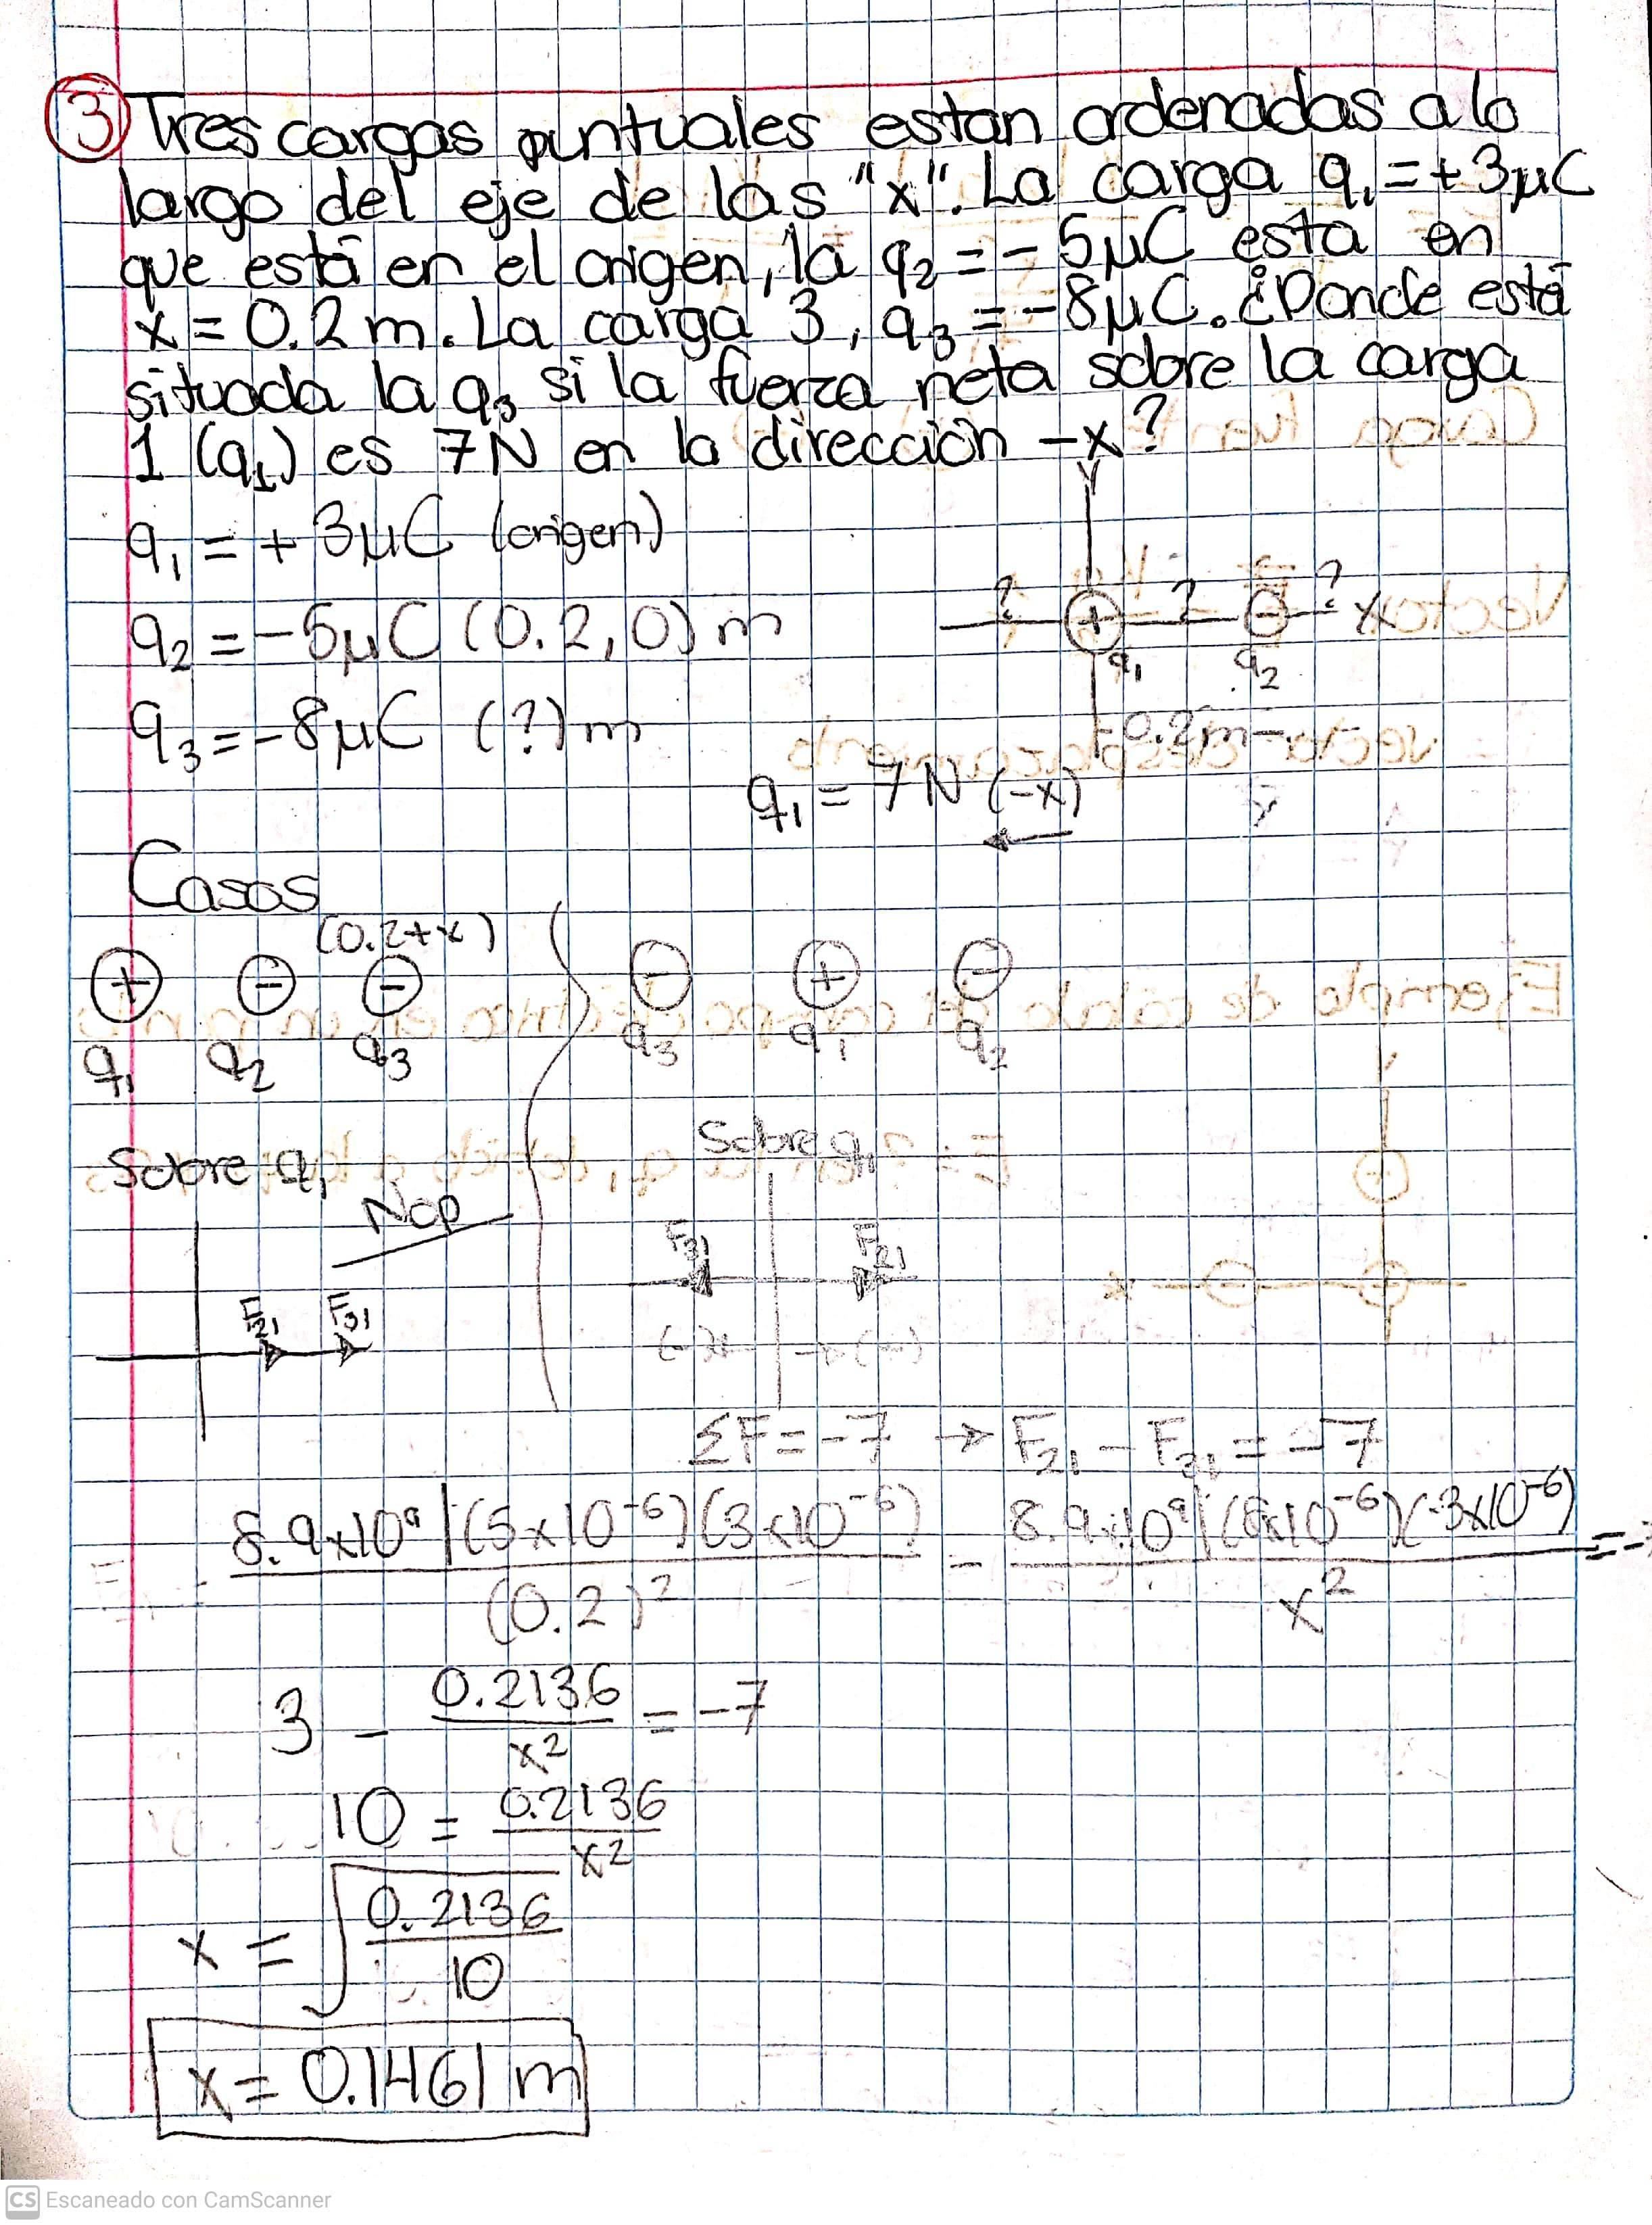 3 Tres cargas puntuales estan ordenadas a lo
largo del eje de las "x". La carga q₁ = +3μC
que está en el origen, la q₂ = -5μC esta en
x = 0.2 m. La carga 3, q₃ = -8μC. ¿Donde está
situada la q₃ si la fuerza neta sobre la carga
1 (q₁) es 7N en la dirección -x?
q₁ = + 3μC (origen)
q₂ = -5μC (0.2, 0) m
q₃ = -8μC (?) m
y
? + ? - ? x
q₁ q₂
0.2m
q₁ = 7N (-x)
Casos
(0.2+x)
+ - -
q₁ q₂ q₃
- + -
q₃ q₁ q₂
Sobre q₁
Nop
F₂₁ F₃₁
Sobre q₁
F₃₁ F₂₁
ΣF = -7 → F₂₁ - F₃₁ = -7
= 8.9x10⁹ |(5x10⁻⁶)(3x10⁻⁶) / (0.2)² - 8.9x10⁹ |(8x10⁻⁶)(-3x10⁻⁶) / x² = -7
3 - 0.2136 / x² = -7
10 = 0.2136 / x²
x = √0.2136 / 10
x = 0.1461 m
CS Escaneado con CamScanner